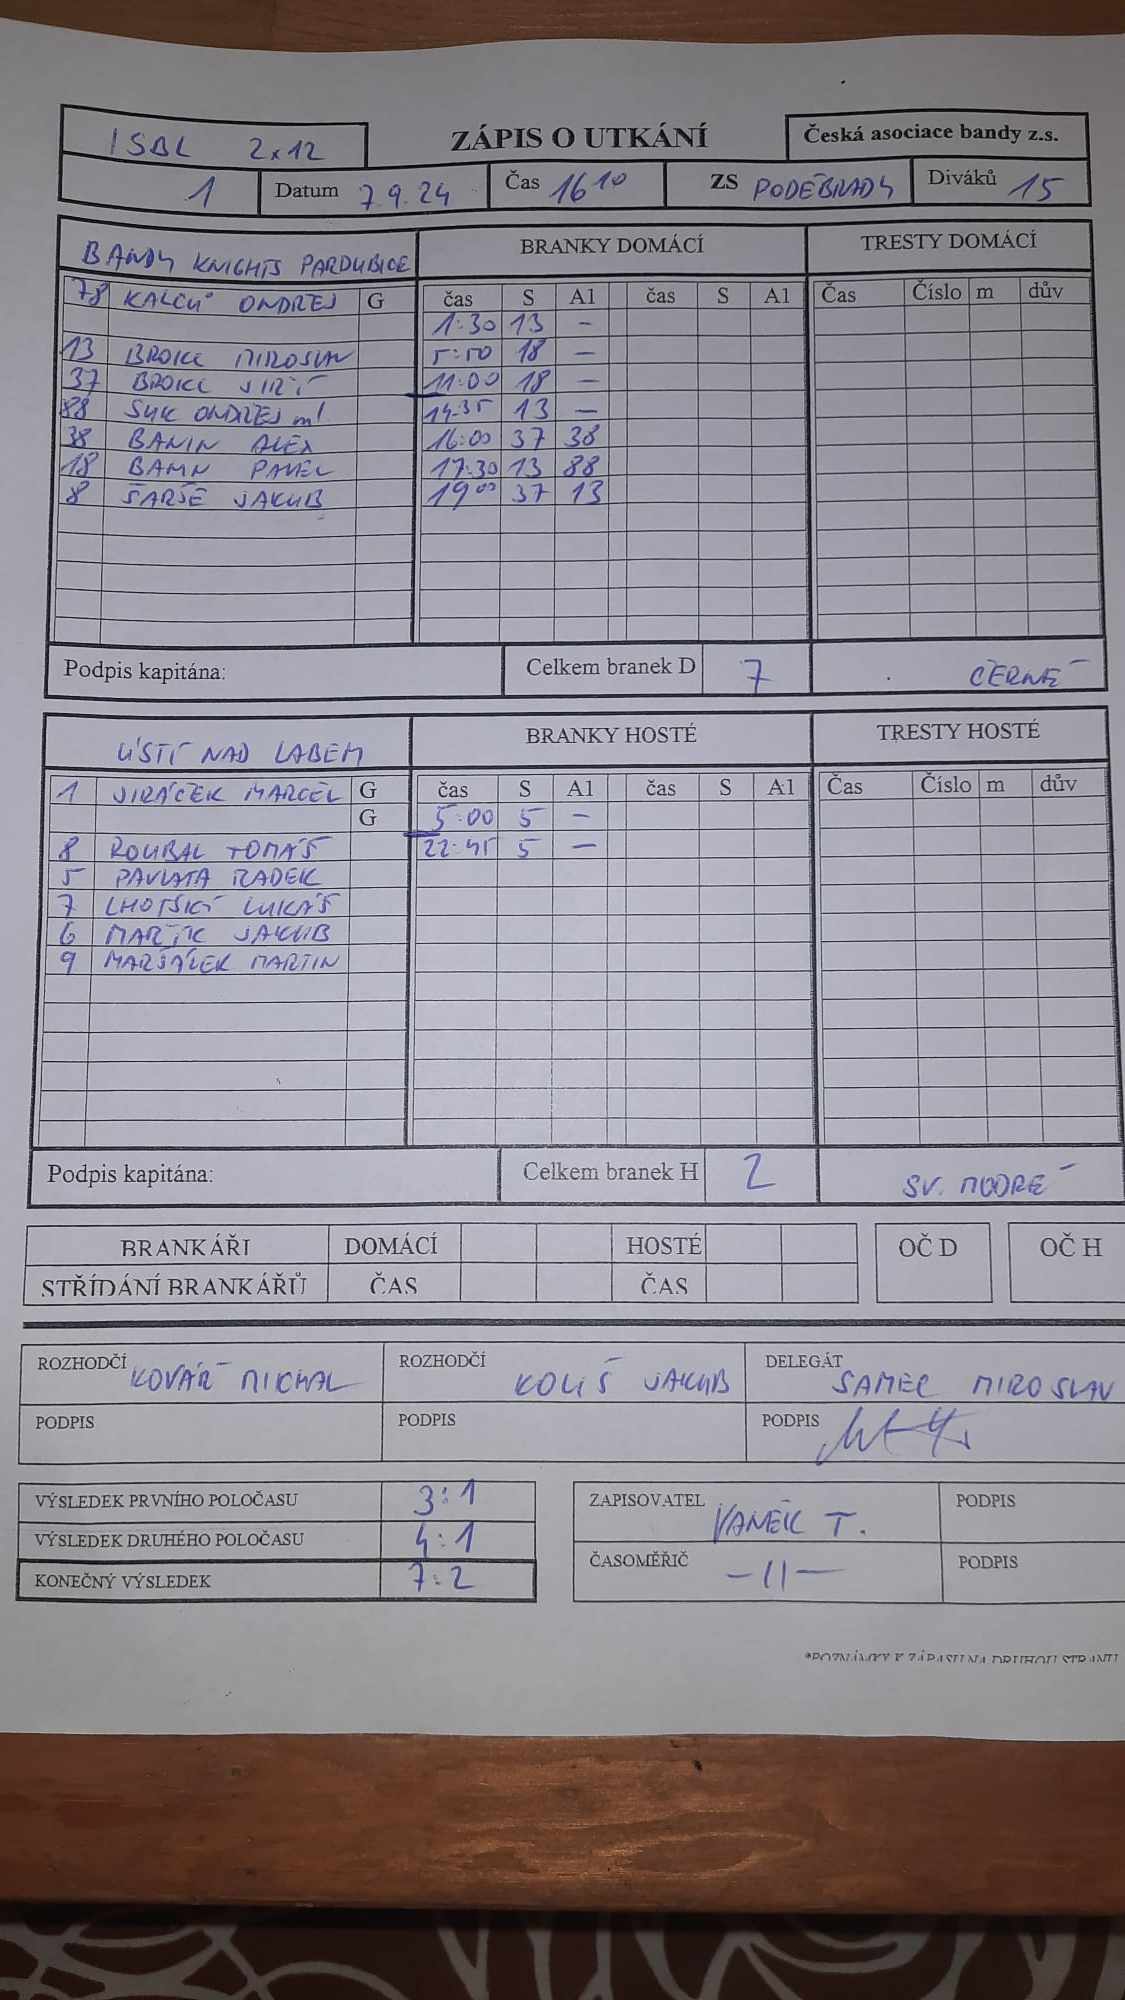 ISBL 2x12 ZÁPIS O UTKÁNÍ Česká asociace bandy z.s.
1 Datum 7.9.24 Čas 16 10 ZS PODĚBRADY Diváků 15
BANDY KNIGHTS PARDUBICE BRANKY DOMÁCÍ TRESTY DOMÁCÍ
78 KALCŮ ONDŘEJ G čas S A1 čas S A1 Čas Číslo m dův
1:30 13 -
13 BROKL MIROSLAV 5:50 18 -
37 BROKL JIŘÍ 11:00 18 -
88 SUK ONDŘEJ ml. 14:35 13 -
38 BANIN ALEX 16:00 37 38
18 BANIN PAVEL 17:30 13 88
8 ŠARŠE JAKUB 19 00 37 13
Podpis kapitána: Celkem branek D 7 ČERNÉ
ÚSTÍ NAD LABEM BRANKY HOSTÉ TRESTY HOSTÉ
1 JIRÁČEK MARCEL G čas S A1 čas S A1 Čas Číslo m dův
G 5:00 5 -
8 ROUBAL TOMÁŠ 22:45 5 -
5 PAVLATA RADEK
7 LHOTSKÝ LUKÁŠ
6 MAŘÍK JAKUB
9 MARŠÁLEK MARTIN
Podpis kapitána: Celkem branek H 2 SV. MODRÉ
BRANKÁŘI DOMÁCÍ HOSTÉ OČ D OČ H
STŘÍDÁNÍ BRANKÁŘŮ ČAS ČAS
ROZHODČÍ KOVÁŘ MICHAL ROZHODČÍ KOLIŠ JAKUB DELEGÁT SAMEC MIROSLAV
PODPIS PODPIS PODPIS
VÝSLEDEK PRVNÍHO POLOČASU 3:1 ZAPISOVATEL VANĚK T. PODPIS
VÝSLEDEK DRUHÉHO POLOČASU 4:1
KONEČNÝ VÝSLEDEK 7:2 ČASOMĚŘIČ -11- PODPIS
*POZNÁMKY K ZÁPASU NA DRUHOU STRANU